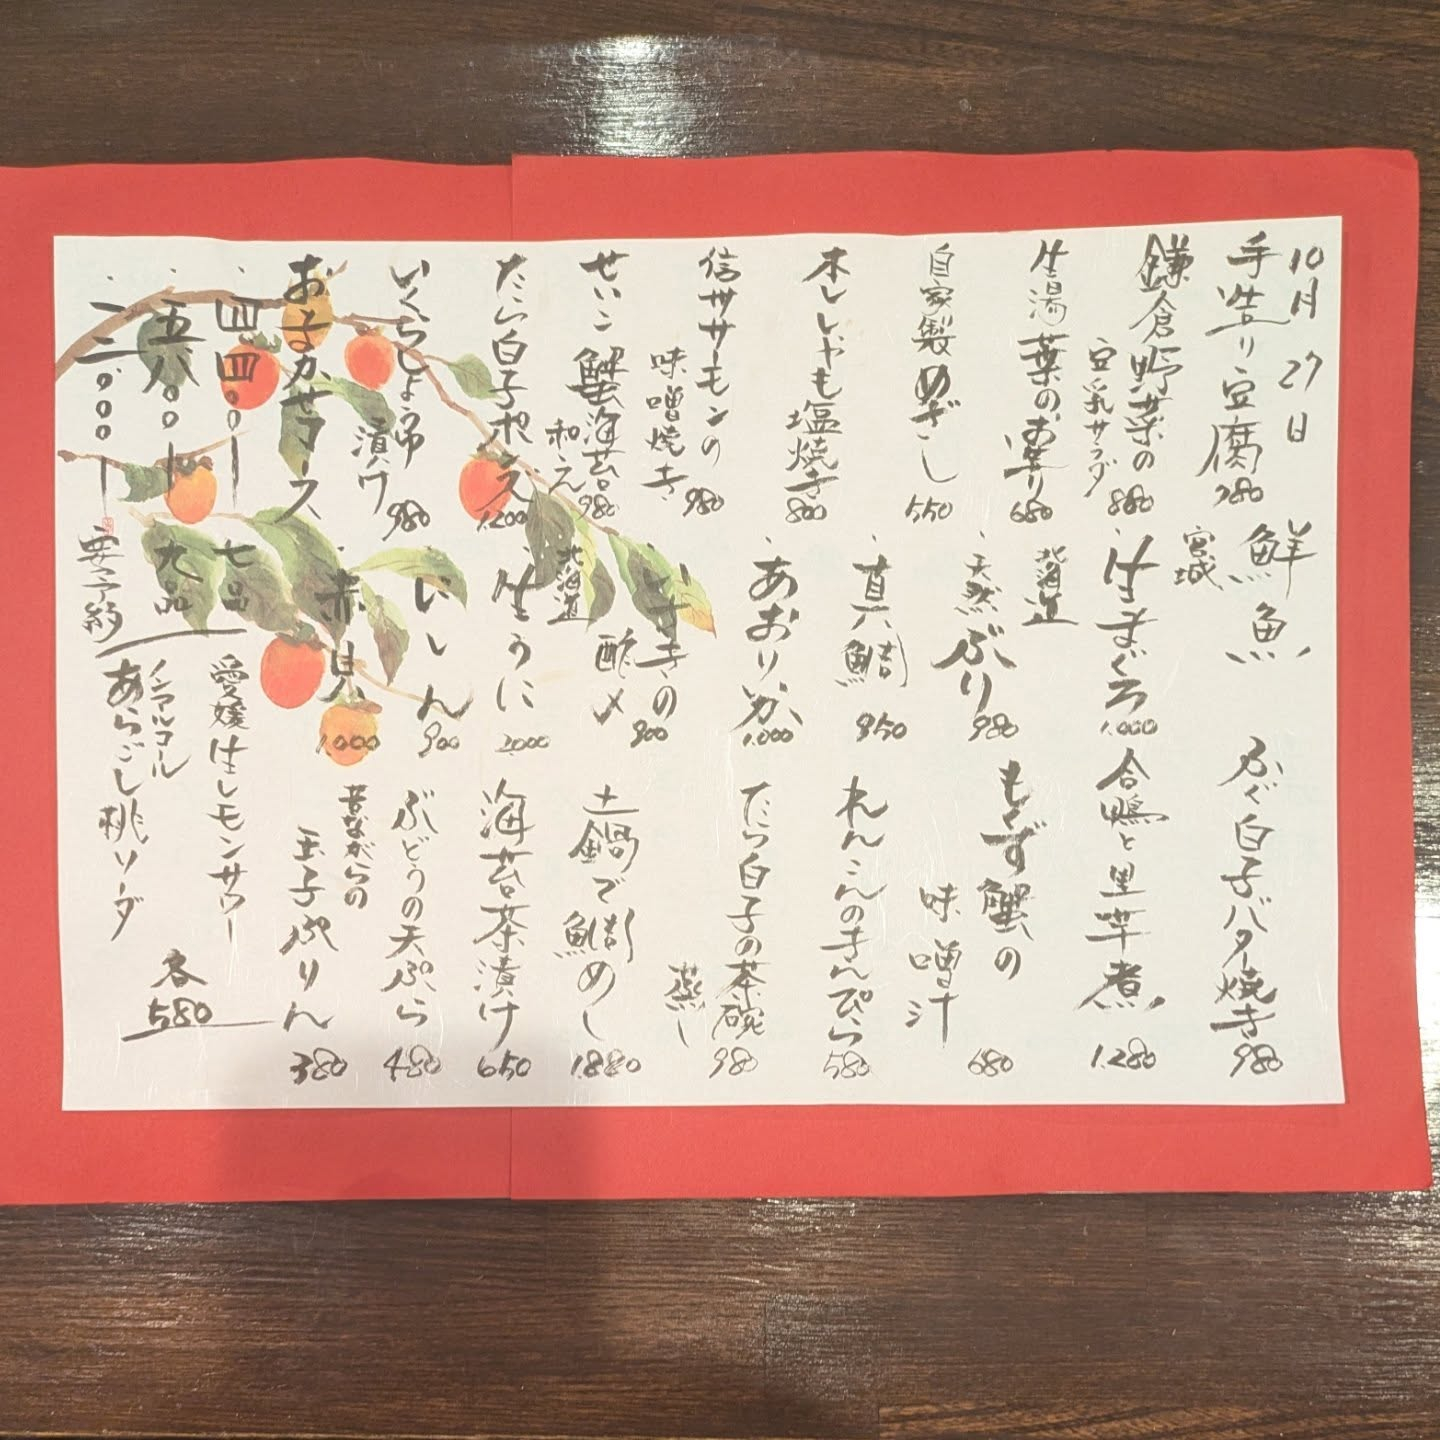 10月27日
手造り豆腐 780
鎌倉野菜の
豆乳サラダ 880
生湯葉のお造り 680
自家製めざし 550
本ししゃも塩焼き 800
信州サーモンの
味噌焼き 980
せいこ蟹海苔
和え 980
たら白子ポン酢 1.200
いくらしょう油
漬け 980
おまかせコース
・四.四〇〇ー 七品
・五.八〇〇ー 九品
・一二.〇〇〇ー 要予約
鮮魚
宮城
・生まぐろ 1.000
北海道
・天然ぶり 980
・真鯛 950
・あおりいか 1.000
・いさきの
酢〆 900
北海道
・生うに 2.000
・にしん 900
・赤貝 1.000
愛媛生レモンサワー
ノンアルコール
あらごし桃ソーダ
各580
ふぐ白子バター焼き 980
合鴨と里芋煮 1.280
もくず蟹の
味噌汁 680
れんこんのきんぴら 580
たら白子の茶碗
蒸し 980
土鍋で鯛めし 1.880
海苔茶漬け 650
ぶどうの天ぷら 480
昔ながらの
玉子ぷりん 380